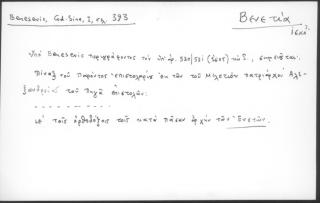 Benesevic, Gd-Sina, I, σελ. 393
Βενετία
Ὑπὸ Benesevic περιγράφοντος τὸν ὑπ' ἀρ. 530/531 τῶν
Πίναξ τοῦ παρόντος ἐπιστολαρίου ἐκ τῶν τοῦ πατριάρχου Ἀλε-
ξανδρείας τοῦ Πηγᾶ ἐπιστολῶν:
- - - - - - - - - -
τοῖς ὀρθοδόξοις τοῖς κατὰ πᾶσαν ἀρχὴν τῶν Ἑνετῶν.